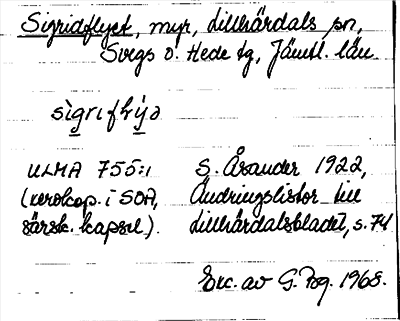 Sigridflyet, myr, Lillhärdals sn,
Svegs o. Hede tg, Jämtl. län
sigrifłýə
ULMA 755:1 S. Åsander 1922,
(xerokop. i SOA, Ändringslistor till
särsk. kapsel). Lillhärdalsbladet, s. 74
Exc. av G. Pg. 1968.